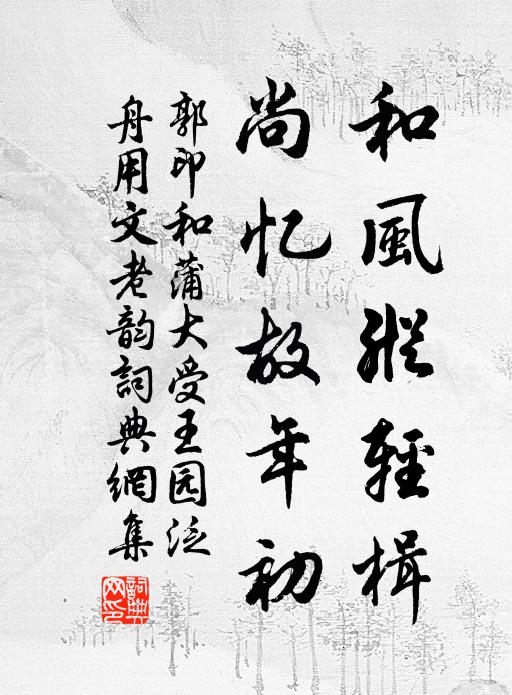 和風縱輕楫
尚忆故年初
郭印和蒲大受王园泛
舟用文老韵詞典網集